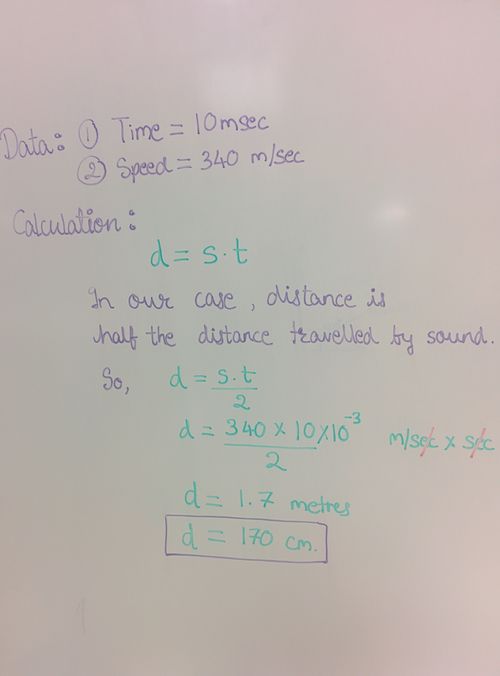 Data: ① Time = 10msec
② Speed = 340 m/sec
Calculation:
d = s.t
In our case, distance is
half the distance travelled by sound.
So, d = s.t/2
d = 340 × 10 × 10⁻³/2 m/sec × sec
d = 1.7 metres
d = 170 cm.